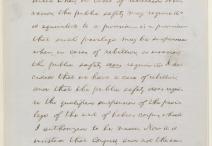 when the public safety may require it
is equivalent to a provision
that such privilege may be suspended
when, in cases of rebellion, or invasion,
the public safety does require it. I de-
cided that we have a case of rebellion,
and that the public safety does require
the qualified suspension of the privi-
lege of the writ of habeas corpus, which
I authorized to be made. Now it is
insisted that Congress and not the